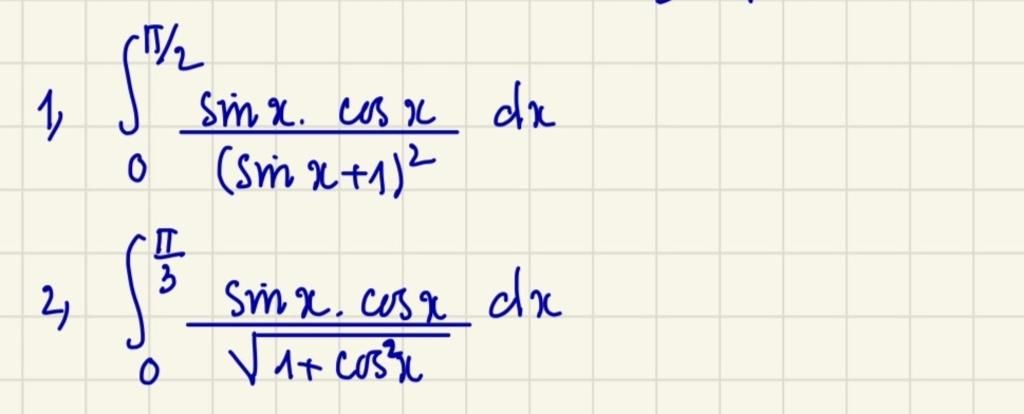 1, ∫₀^{π/2} \frac{sin x. cos x}{(sin x+1)²} dx
2, ∫₀^{\frac{π}{3}} \frac{sin x. cos x}{\sqrt{1+ cos²x}} dx